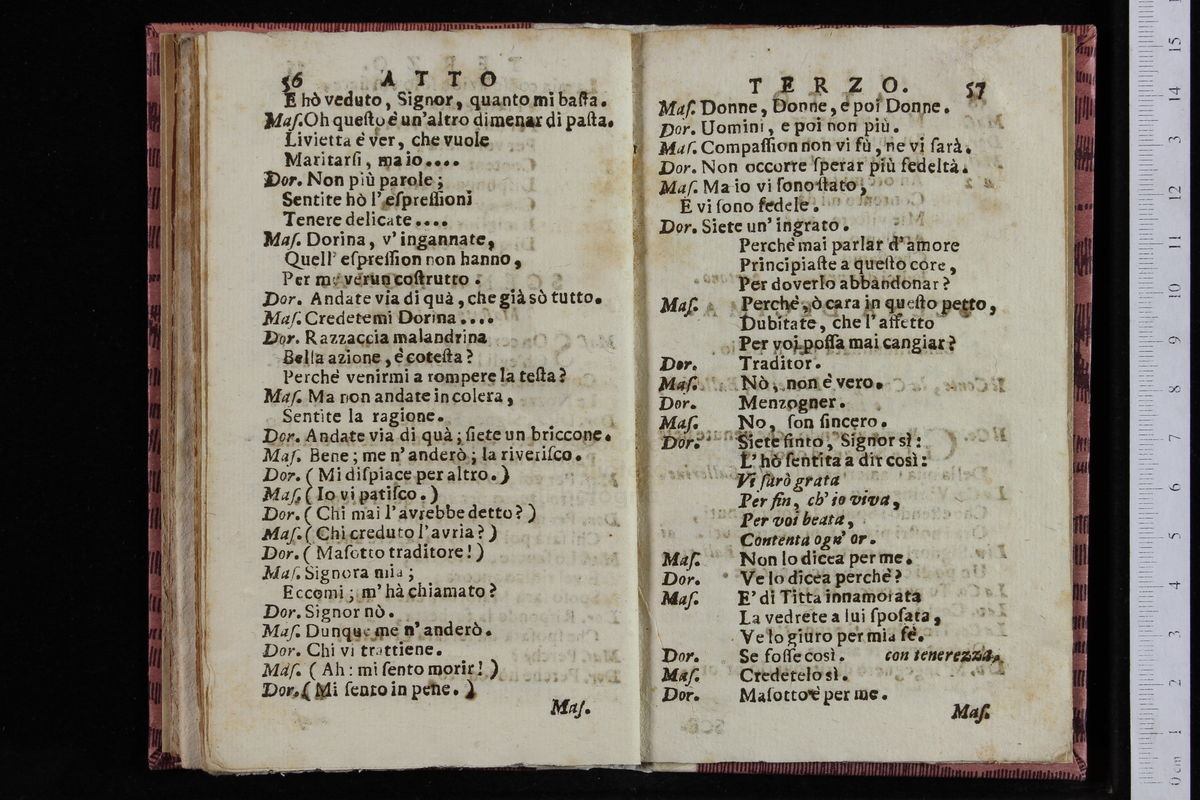 56 ATTO
E hò veduto, Signor, quanto mi baſta.
Maſ. Oh queſto è un'altro dimenar di paſta.
Livietta è ver, che vuole
Maritarſi, ma io....
Dor. Non più parole;
Sentite hò l'eſpreſſioni
Tenere delicate....
Maſ. Dorina, v'ingannate,
Quell' eſpreſſion non hanno,
Per me verun coſtrutto.
Dor. Andate via di quà, che già sò tutto.
Maſ. Credetemi Dorina....
Dor. Razzaccia malandrina
Bella azione, è coteſta?
Perchè venirmi a rompere la teſta?
Maſ. Ma non andate in colera,
Sentite la ragione.
Dor. Andate via di quà; ſiete un briccone.
Maſ. Bene; me n'anderò; la riveriſco.
Dor. (Mi diſpiace per altro.)
Maſ. (Io vi patiſco.)
Dor. (Chi mai l'avrebbe detto?)
Maſ. (Chi creduto l'avria?)
Dor. (Maſotto traditore!)
Maſ. Signora mia;
Eccomi; m'hà chiamato?
Dor. Signor nò.
Maſ. Dunque me n'anderò.
Dor. Chi vi trattiene.
Maſ. (Ah: mi ſento morir!)
Dor. (Mi ſento in pene.)
Maſ.
TERZO. 57
Maſ. Donne, Donne, e poi Donne.
Dor. Uomini, e poi non più.
Maſ. Compaſſion non vi fù, ne vi ſarà.
Dor. Non occorre ſperar più fedeltà.
Maſ. Ma io vi ſono ſtato,
E vi ſono fedele.
Dor. Siete un' ingrato.
Perchè mai parlar d'amore
Principiaſte a queſto core,
Per doverlo abbandonar?
Maſ. Perchè, ò cara in queſto petto,
Dubitate, che l'affetto
Per voi poſſa mai cangiar?
Dor. Traditor.
Maſ. Nò, non è vero.
Dor. Menzogner.
Maſ. No, ſon ſincero.
Dor. Siete finto, Signor sì:
L'hò ſentita a dir così:
Vi ſarò grata
Per fin, ch'io viva,
Per voi beata,
Contenta ogn' or.
Maſ. Non lo dicea per me.
Dor. Ve lo dicea perchè?
Maſ. E' di Titta innamorata
La vedrete a lui ſpoſata,
Ve lo giuro per mia fè.
Dor. Se foſſe così. con tenerezza.
Maſ. Credetelo sì.
Dor. Maſotto è per me.
Maſ.